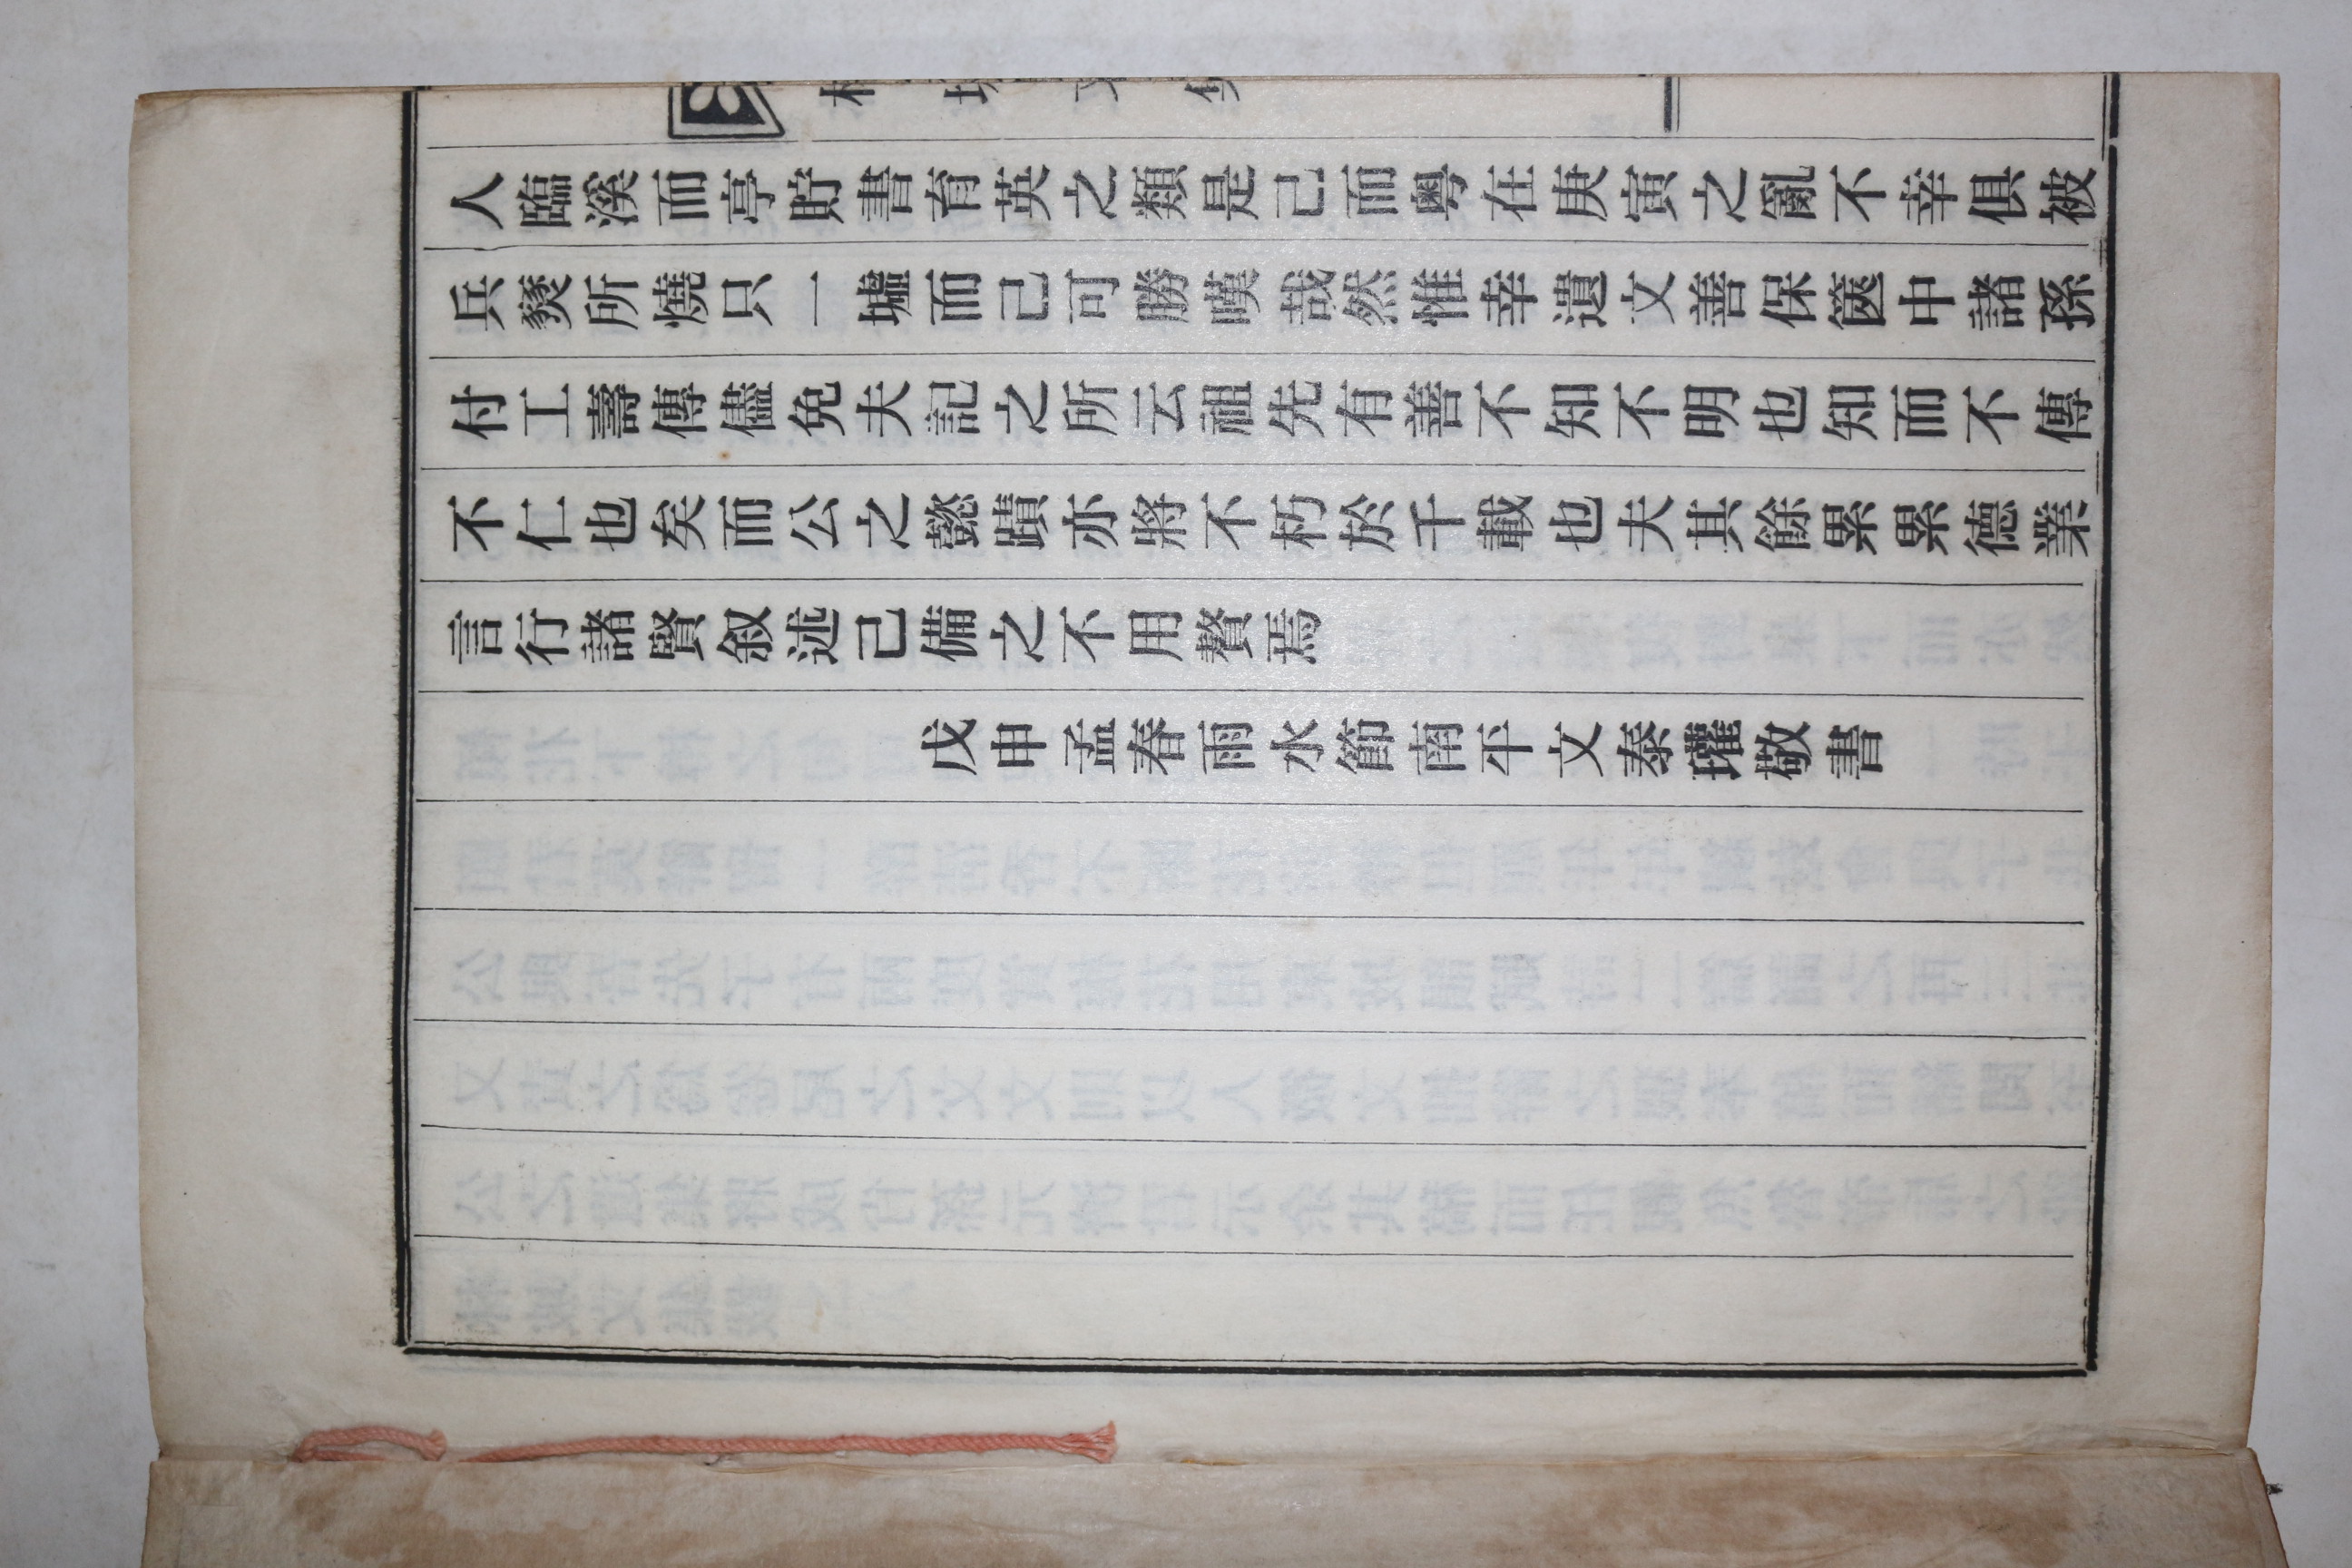 人臨溪而亭貯書育英之類是己而粤在庚寅之亂不幸俱被
兵燹所燒只一墟而己可勝嘆哉然惟幸遺文善保篋中諸孫
付工壽傳儘免夫記之所云祖先有善不知不明也知而不傳
不仁也矣而公之懿蹟亦將不朽於千載也夫其餘累累德業
言行諸賢叙述己備之不用贅焉
戊申孟春雨水節南平文泰瓘敬書